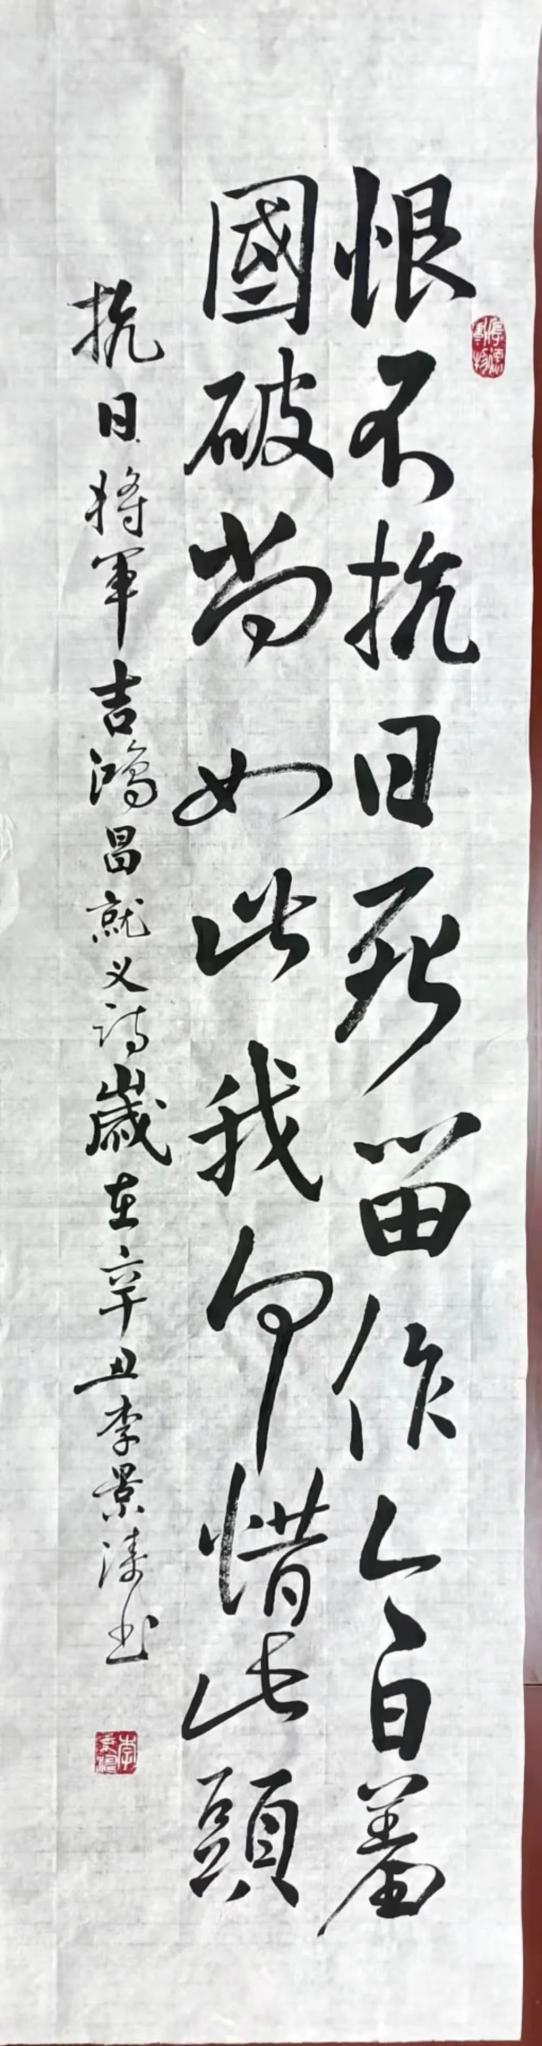 恨不抗日死留作今日羞
國破尚如此我何惜此頭
抗日将軍吉鴻昌就义诗歲在辛丑李景涛书
厚德載物